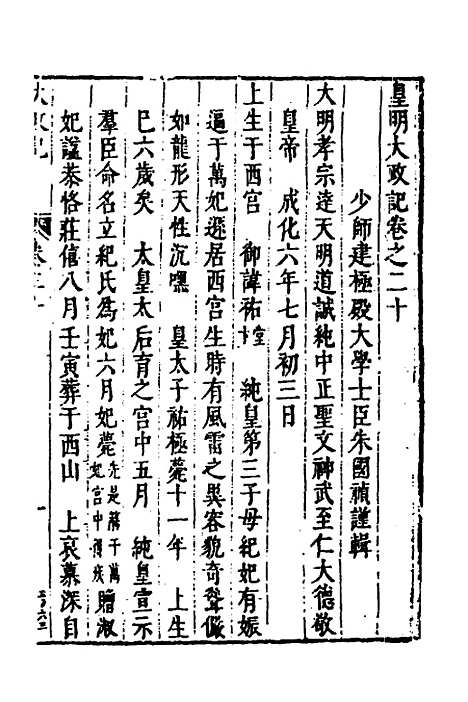 皇明大政記卷之二十
少師建極殿大學士臣朱國禎謹輯
大明孝宗達天明道誠純中正聖文神武至仁大德敬
皇帝 成化六年七月初三日
上生于西宮 御諱祐堂 純皇第三子母紀妃有娠
逼于萬妃遜居西宮生時有風雷之異容貌奇聳儼
如龍形天性沉嘿 皇太子祐極薨十一年 上生
巳六歲矣 太皇太后育之宮中五月 純皇宣示
羣臣命名立紀氏爲妃六月妃薨先是蔣于萬妃宮中得疾贈淑
妃諡恭恪莊僖八月壬寅葬于西山 上哀慕深自
大政記
卷二十
一